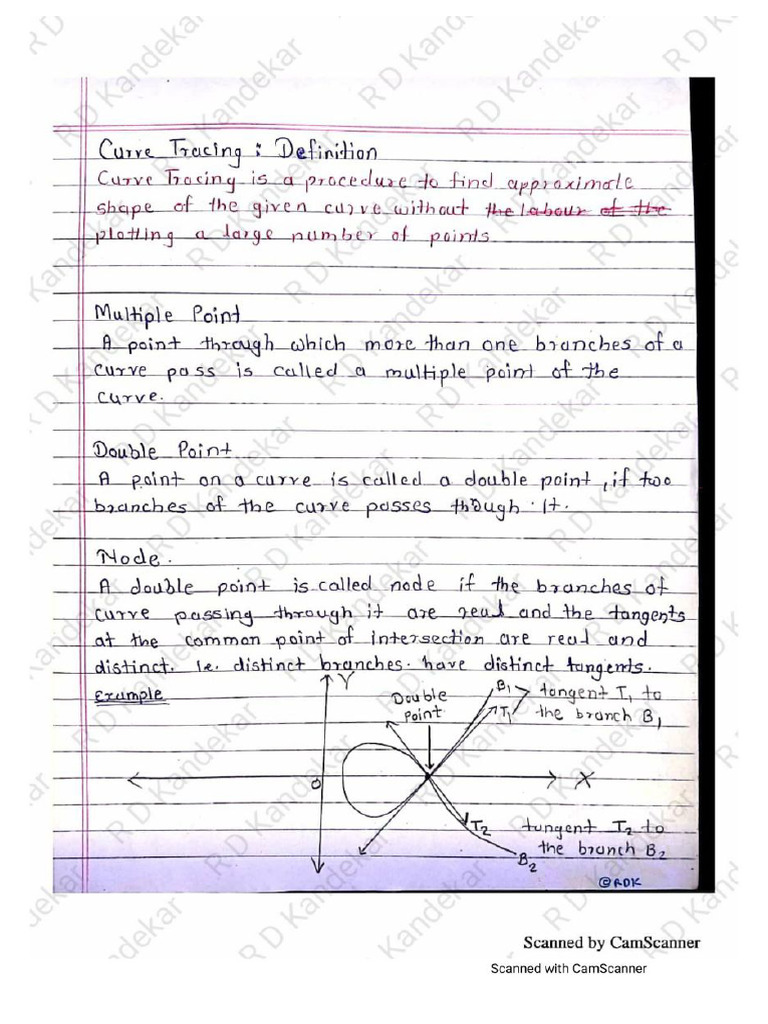 Curve Tracing : Definition
Curve Tracing is a procedure to find approximate
shape of the given curve without the labour of the
plotting a large number of points.
Multiple Point
A point through which more than one branches of a
curve pass is called a multiple point of the
curve.
Double Point
A point on a curve is called a double point, if two
branches of the curve passes through it.
Node.
A double point is called node if the branches of
curve passing through it are real and the tangents
at the common point of intersection are real and
distinct. i.e. distinct branches have distinct tangents.
Example
Y
Double
Point
B1
T1
tangent T1 to
the branch B1
O
X
T2
B2
tangent T2 to
the branch B2
©RDK
Scanned by CamScanner
Scanned with CamScanner
R D Kandekar